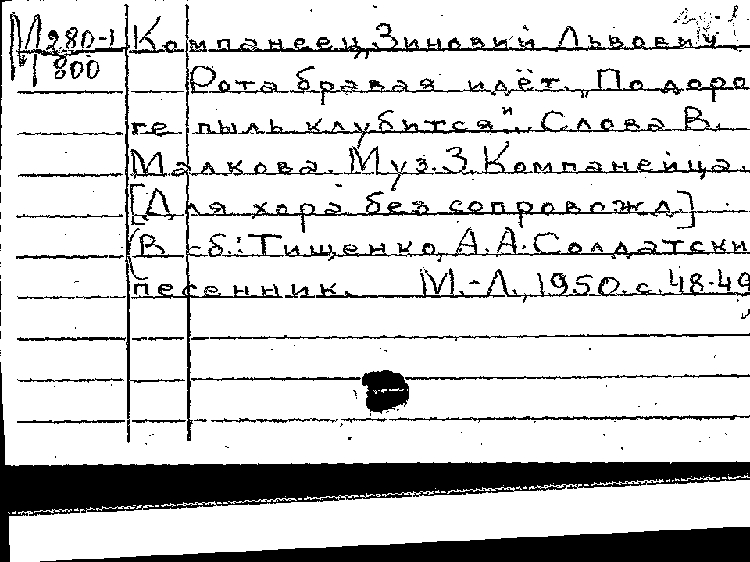 М 280-1 Компанеец, Зиновий Львович
М 800
Рота бравая идёт. „По доро
ге пыль клубится". Слова В.
Малкова. Муз. З. Компанейца.
[Для хора без сопровожд]
(В сб.: Тищенко, А. А. Солдатски
песенник. М.-Л., 1950. с. 48-49